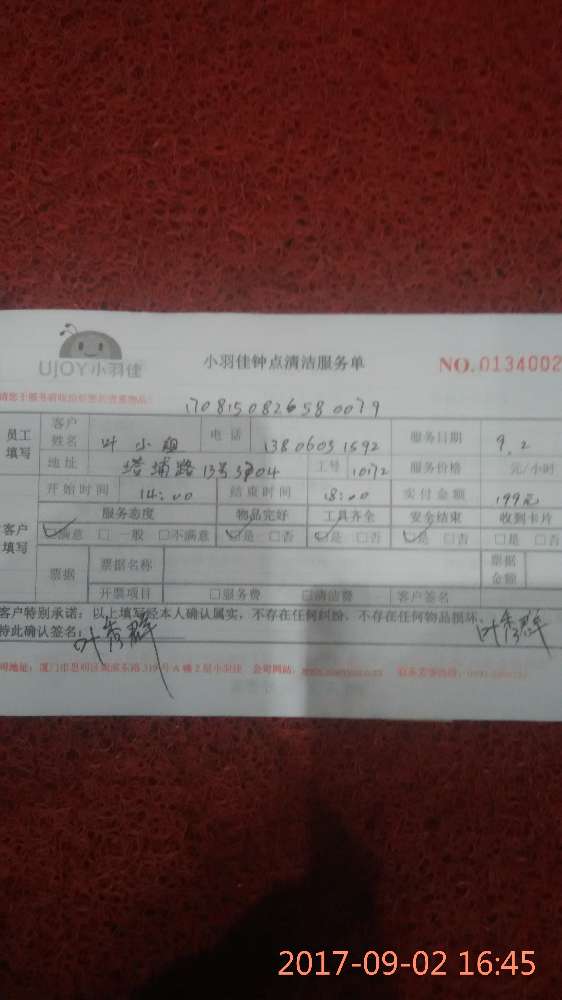 UJOY小羽佳
小羽佳钟点清洁服务单
NO.0134002
1708150826580079
员工填写
客户姓名 叶小姐 电话 13806031592 服务日期 9.2
地址 塔埔路13号 04 工号 10172 服务价格 元/小时
开始时间 14:00 结束时间 18:00 实付金额 199元
客户填写
服务态度 物品完好 工具齐全 安全结束 收到卡片
☑满意 □一般 □不满意 ☑是 □否 ☑是 □否 ☑是 □否 □是 □否
票据 票据名称 票据金额
开票项目 □服务费 □清洁费 客户签名
客户特别承诺:以上填写经本人确认属实,不存在任何纠纷,不存在任何物品损坏
特此确认签名: 叶秀群 叶秀群
司地址:厦门市思明区 319号A楼2层小羽佳 公司网站:
2017-09-02 16:45